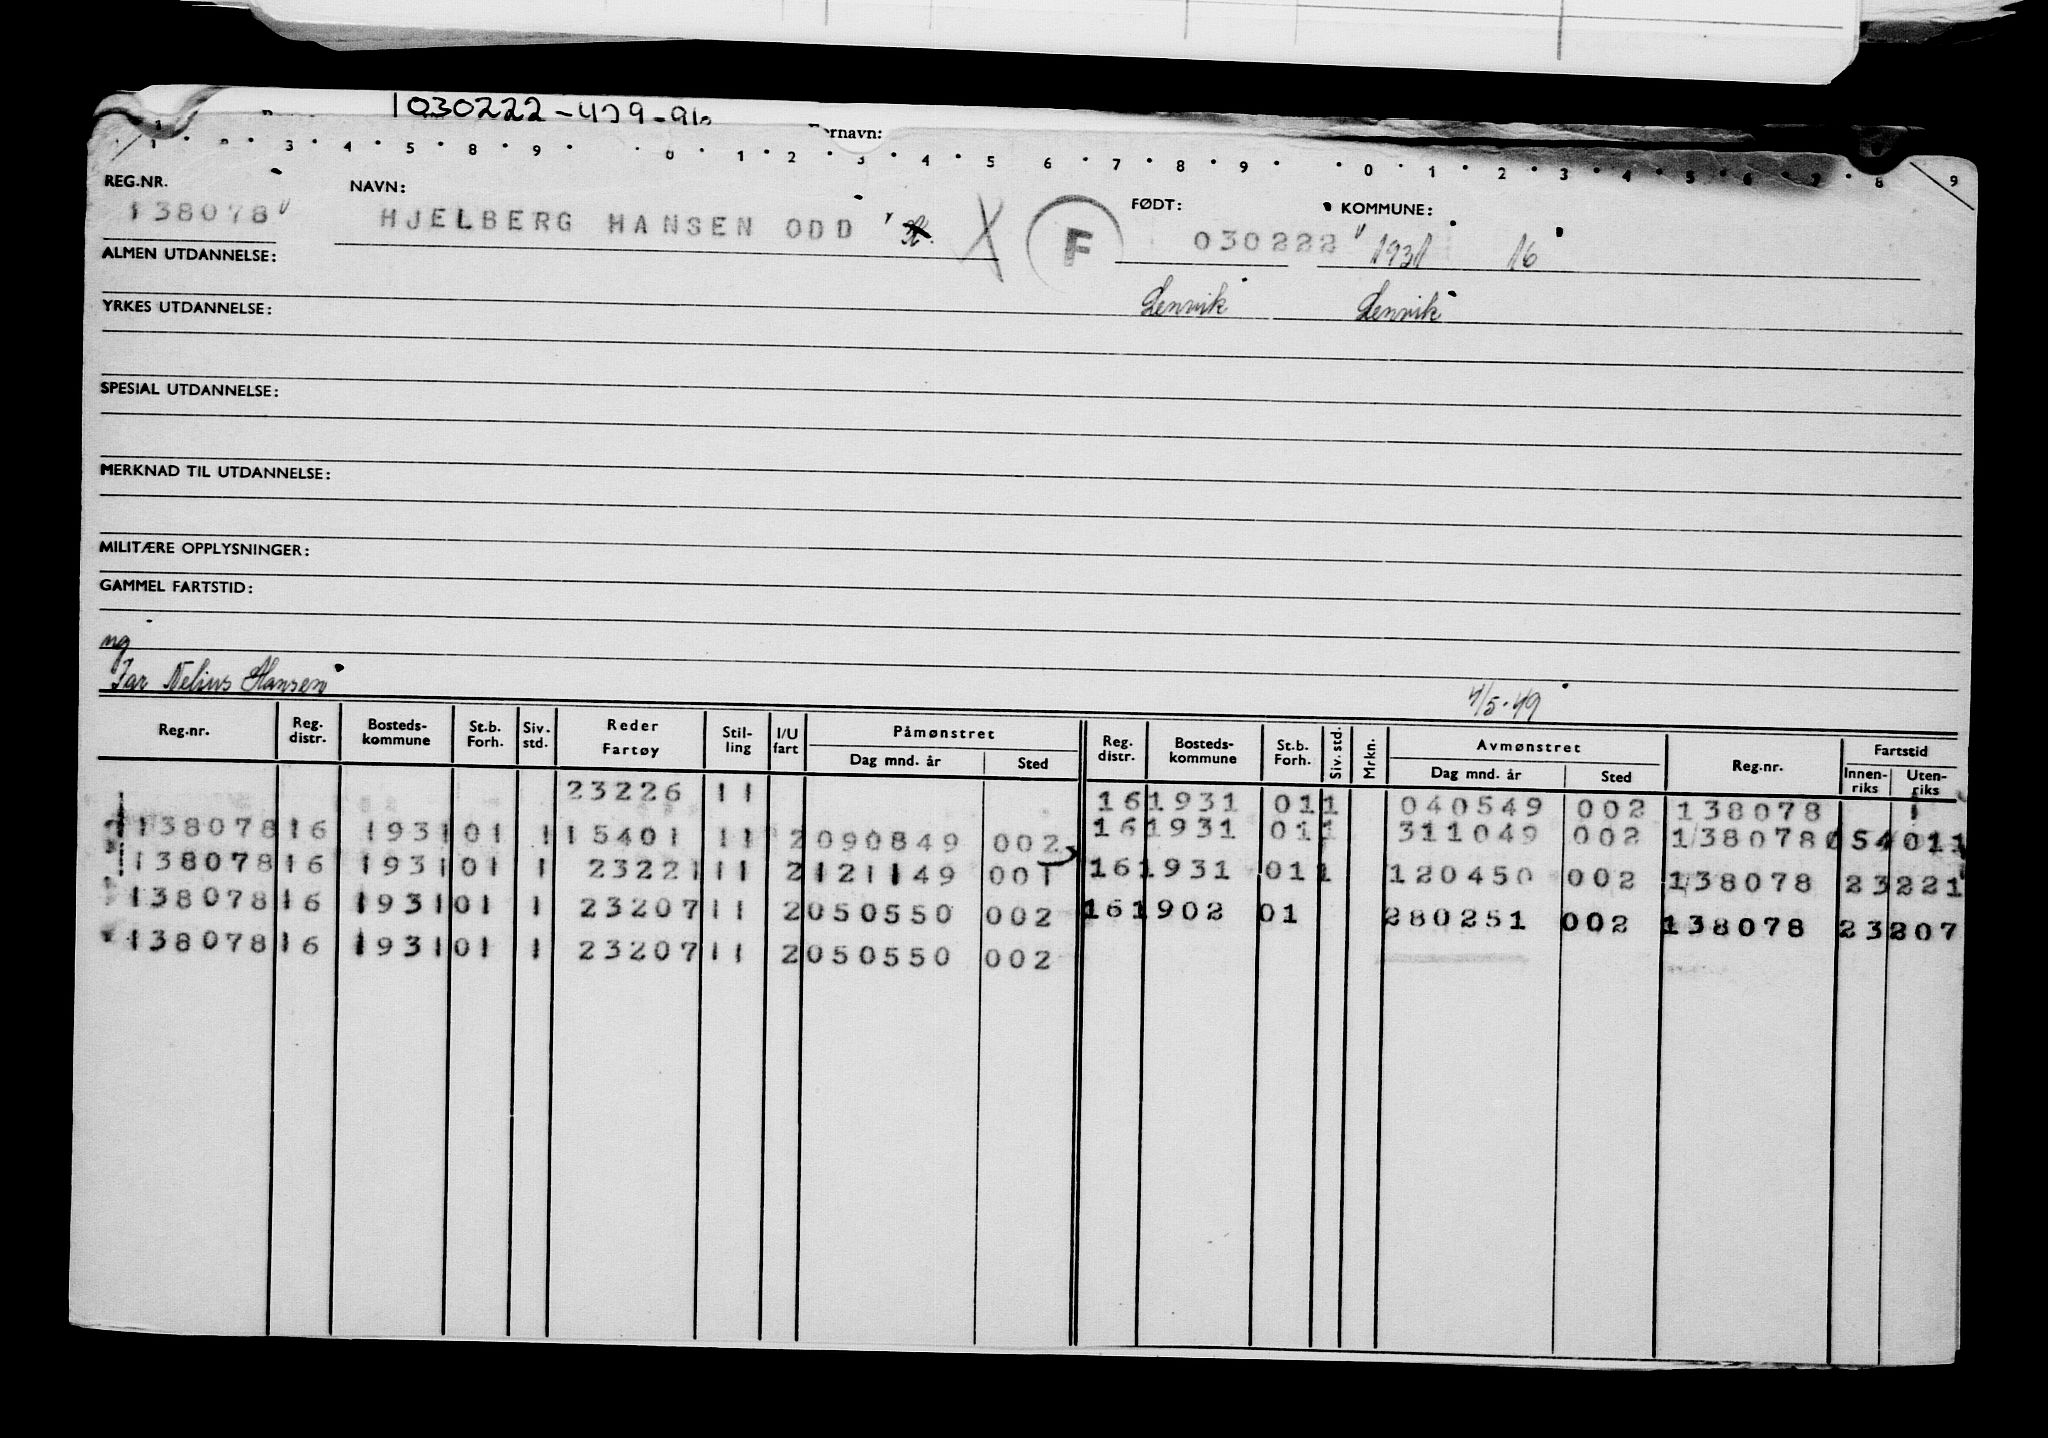 1030222-479-96
ernavn:
1 3 4 5 8 9 0 1 2 3 4 5 6 7 8 9 0 1 2 3 4 5 6 7 8 9
REG.NR. NAVN: FØDT: KOMMUNE:
138078 HJELBERG HANSEN ODD F 030222 1931 16
ALMEN UTDANNELSE:
Lenvik Lenvik
YRKES UTDANNELSE:
SPESIAL UTDANNELSE:
MERKNAD TIL UTDANNELSE:
MILITÆRE OPPLYSNINGER:
GAMMEL FARTSTID:
ng
Far Nelius Hansen
4/5-49
Reg.nr. Reg. distr. Bosteds-kommune St.b. Forh. Siv. std. Reder Fartøy Stil-ling I/U fart Påmønstret Dag mnd. år Sted Reg. distr. Bosteds-kommune St.b. Forh. Siv. std. Mrkn. Avmønstret Dag mnd. år Sted Reg.nr. Fartstid Innen-riks Uten-riks
23226 11 16 1931 01 1 040549 002 138078
138078 16 1931 01 1 15401 11 2 090849 002 16 1931 01 1 311049 002 138078 54 011
138078 16 1931 01 1 23221 11 2 121149 001 16 1931 01 1 120450 002 138078 23 221
138078 16 1931 01 1 23207 11 2 050550 002 16 1902 01 280251 002 138078 23 207
138078 16 1931 01 1 23207 11 2 050550 002